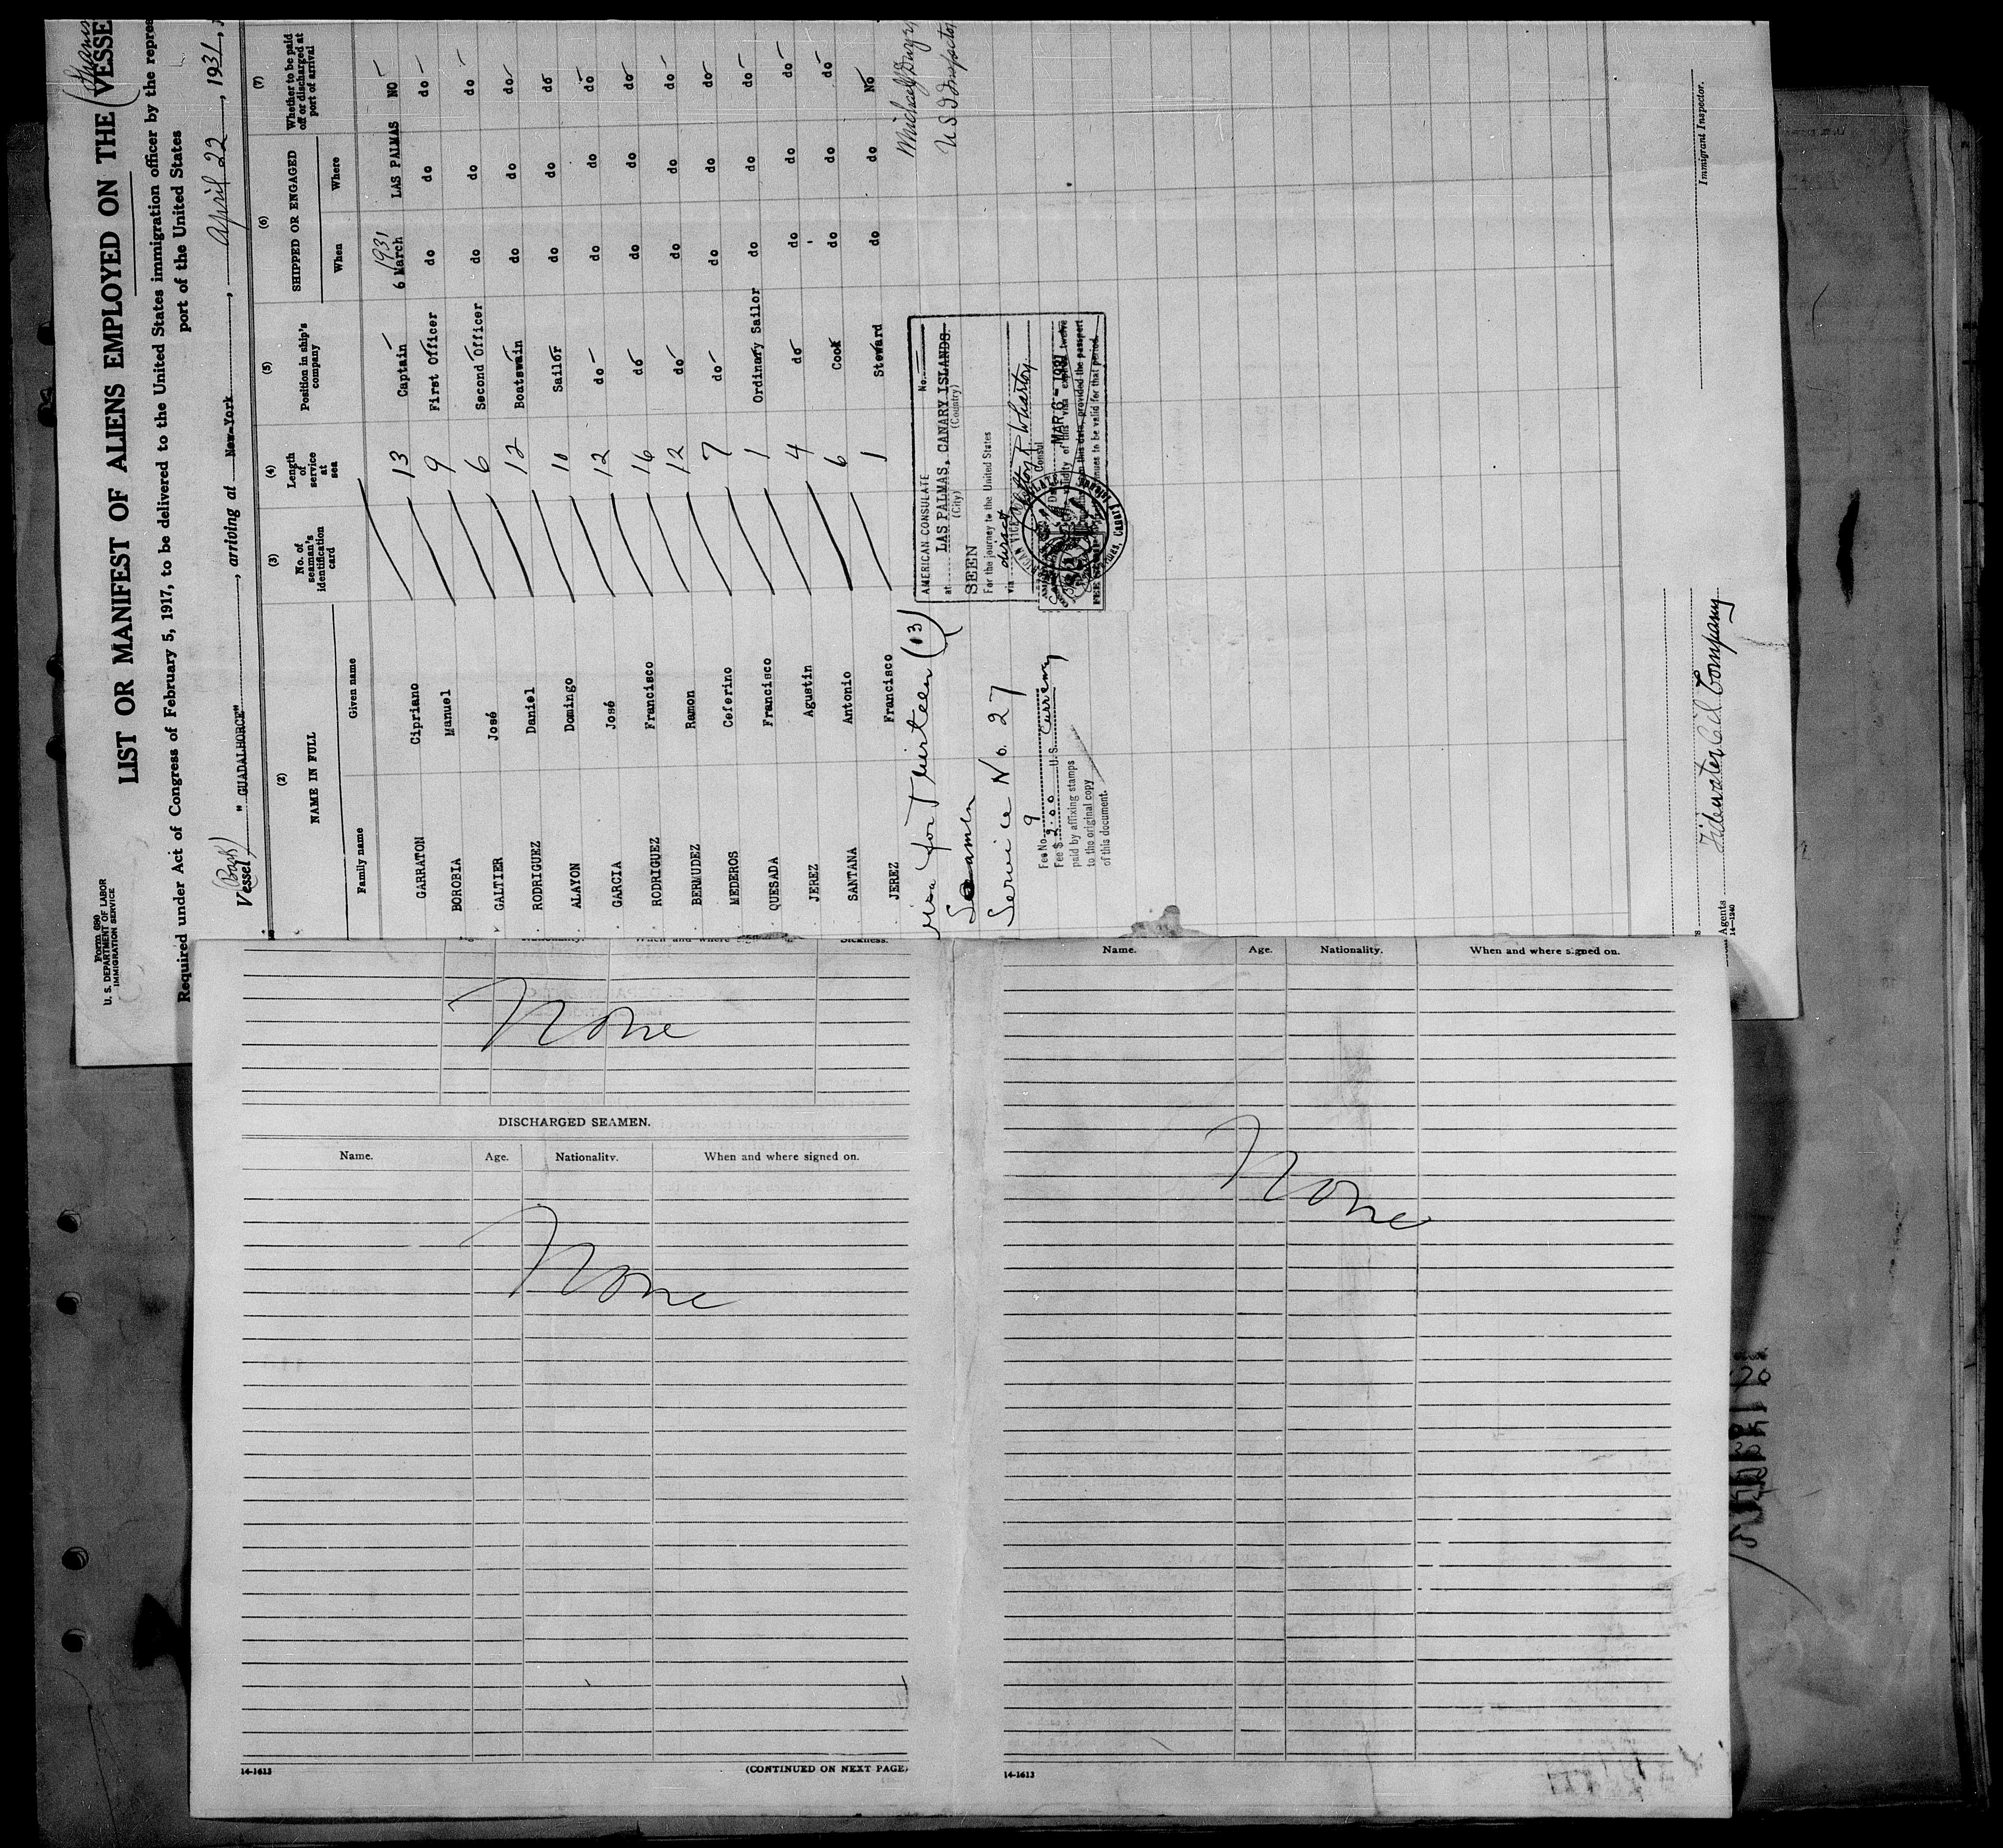 Form 680
U. S. DEPARTMENT OF LABOR
IMMIGRATION SERVICE
LIST OR MANIFEST OF ALIENS EMPLOYED ON THE VESSE
Required under Act of Congress of February 5, 1917, to be delivered to the United States immigration officer by the repres
port of the United States
Vessel "GUADALHORCE", arriving at New-York, April 22, 1931,
(2) (3) (4) (5) (6) (7)
NAME IN FULL No. of seaman's identification card Length of service at sea Position in ship's company SHIPPED OR ENGAGED Whether to be paid off or discharged at port of arrival
Family name Given name When Where
1931
GARRATON Cipriano 13 Captain 6 March LAS PALMAS NO
BOROBIA Manuel 9 First Officer do do do
GALTIER José 6 Second Officer do do do
RODRIGUEZ Daniel 12 Boatswain do do do
ALAYON Domingo 10 Sailor do do do
GARCIA José 12 do do do do
RODRIGUEZ Francisco 16 do do do do
BERMUDEZ Ramon 12 do do do do
MEDEROS Ceferino 7 do do do do
QUESADA Francisco 1 Ordinary Sailor do do do
JEREZ Agustin 4 do do do do
SANTANA Antonio 6 Cook do do do
JEREZ Francisco 1 Steward do do No
Visa for Thirteen (13)
Seamen
Service No. 27
Fee No. 9
Fee $ 2.00 U.S. Currency
paid by affixing stamps
to the original copy
of this document.
AMERICAN CONSULATE No.
at LAS PALMAS, CANARY ISLANDS.
(City) (Country)
SEEN
For the journey to the United States
via direct
Consul
MAR 6 - 1931
U S I Inspector
Immigrant Inspector.
Tidewater Oil Company
Agents
14-1240
Nationality. When and where signed Sickness.
None
DISCHARGED SEAMEN.
Name. Age. Nationality. When and where signed on.
None
14-1613 (CONTINUED ON NEXT PAGE)
Name. Age. Nationality. When and where signed on.
None
14-1613